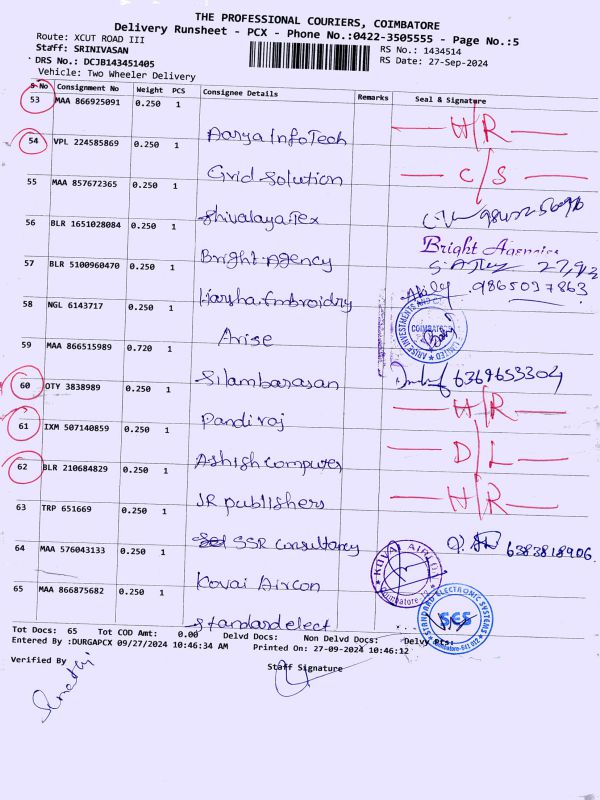 THE PROFESSIONAL COURIERS, COIMBATORE
Delivery Runsheet - PCX - Phone No.:0422-3505555 - Page No.:5
Route: XCUT ROAD III
RS No.: 1434514
Staff: SRINIVASAN
RS Date: 27-Sep-2024
DRS No.: DCJB143451405
Vehicle: Two Wheeler Delivery
S No Consignment No Weight PCS Consignee Details Remarks Seal & Signature
53 MAA 866925091 0.250 1 Aarya InfoTech H/R
54 VPL 224585869 0.250 1 Grid Solution C/S
55 MAA 857672365 0.250 1 Shivalaya Tex
56 BLR 1651028084 0.250 1 Bright Agency Bright Agencies
57 BLR 5100960470 0.250 1 Harsha Embroidry 9865037863
58 NGL 6143717 0.250 1 Arise ARISE INVESTMENTS AND LIMITED COIMBATORE
59 MAA 866515989 0.720 1 Silambarasan 6369653304
60 OTY 3838989 0.250 1 Pandiraj H/R
61 IXM 507140859 0.250 1 Ashish Computer D/L
62 BLR 210684829 0.250 1 JR publishers H/R
63 TRP 651669 0.250 1 SSR Consultancy 6383818906
64 MAA 576043133 0.250 1 Kovai Aircon KOVAI AIRCON
65 MAA 866875682 0.250 1 Standard elect STANDARD ELECTRONIC SYSTEMS SES Coimbatore-641 012
Tot Docs: 65 Tot COD Amt: 0.00 Delvd Docs: Non Delvd Docs: Delvy Pts:
Entered By :DURGAPCX 09/27/2024 10:46:34 AM Printed On: 27-09-2024 10:46:12
Verified By
Staff Signature